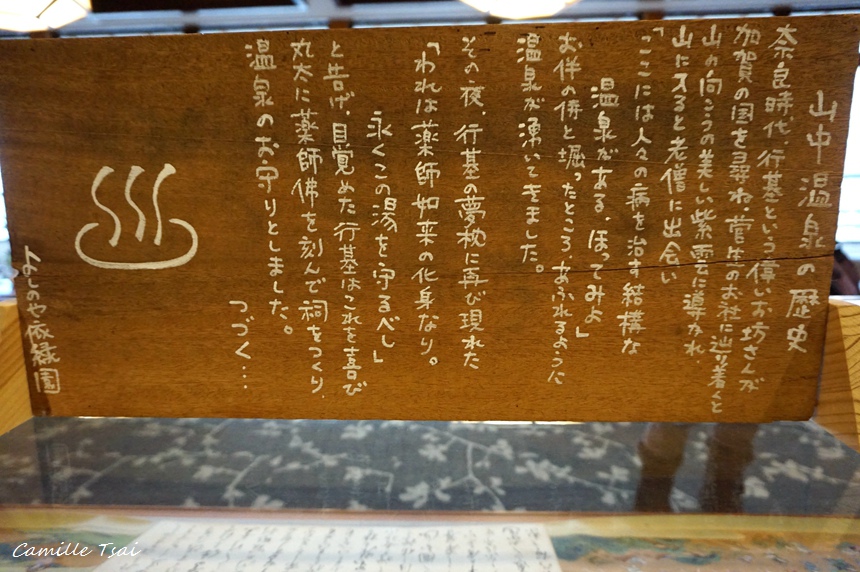 山中温泉の歴史
奈良時代、行基という偉いお坊さんが
加賀の国を尋ね菅生のお社に辿り着くと
山の向こうの美しい紫雲に導かれ、
山に入ると老僧に出会い
「ここには人々の病を治す結構な
温泉がある。ほってみよ」
お伴の侍と掘ったところ、あふれるように
温泉が湧いてきました。
その夜、行基の夢枕に再び現れた
「われは薬師如来の化身なり。
永くこの湯を守るべし」
と告げ、目覚めた行基はこれを喜び
丸太に薬師佛を刻んで祠をつくり、
温泉のお守りとしました。
つづく…
よしのや依緑園
Camille Tsai